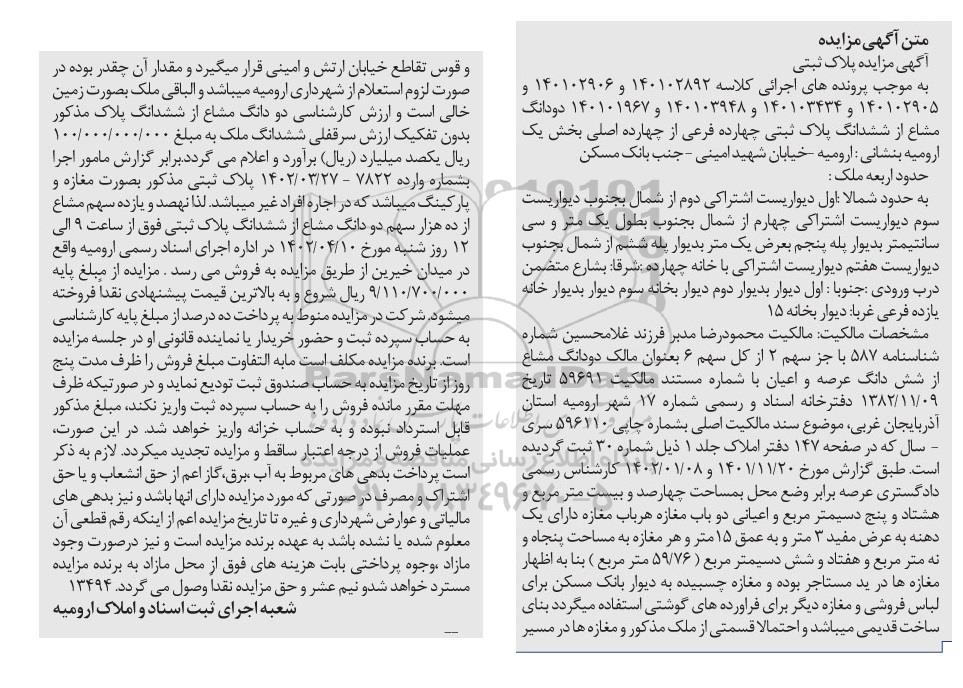 متن آگهی مزایده
آگهی مزایده پلاک ثبتی
به موجب پرونده های اجرائی کلاسه ۱۴۰۱۰۲۸۹۲ و ۱۴۰۱۰۲۹۰۶ و
۱۴۰۱۰۲۹۰۵ و ۱۴۰۱۰۳۴۳۴ و ۱۴۰۱۰۳۹۴۸ و ۱۴۰۱۰۱۹۶۷ دودانگ
مشاع از ششدانگ پلاک ثبتی چهارده فرعی از چهارده اصلی بخش یک
ارومیه بنشانی : ارومیه -خیابان شهید امینی -جنب بانک مسکن
حدود اربعه ملک :
به حدود شمالا :اول دیواریست اشتراکی دوم از شمال بجنوب دیواریست
سوم دیواریست اشتراکی چهارم از شمال بجنوب بطول یک متر و سی
سانتیمتر بدیوار پله پنجم بعرض یک متر بدیوار پله ششم از شمال بجنوب
دیواریست هفتم دیواریست اشتراکی با خانه چهارده :شرقا: بشارع متضمن
درب ورودی :جنوبا : اول دیوار بدیوار دوم دیوار بخانه سوم دیوار بدیوار خانه
یازده فرعی غربا: دیوار بخانه ۱۵
مشخصات مالکیت: مالکیت محمودرضا مدبر فرزند غلامحسین شماره
شناسنامه ۵۸۷ با جز سهم ۲ از کل سهم ۶ بعنوان مالک دودانگ مشاع
از شش دانگ عرصه و اعیان با شماره مستند مالکیت ۵۹۶۹۱ تاریخ
۱۳۸۲/۱۱/۰۹ دفترخانه اسناد و رسمی شماره ۱۷ شهر ارومیه استان
آذربایجان غربی، موضوع سند مالکیت اصلی بشماره چاپی ۵۹۶۱۱۰ سری
- سال که در صفحه ۱۴۷ دفتر املاک جلد ۱ ذیل شماره ۳۰ ثبت گردیده
است. طبق گزارش مورخ ۱۴۰۱/۱۱/۲۰ و ۱۴۰۲/۰۱/۰۸ کارشناس رسمی
دادگستری عرصه برابر وضع محل بمساحت چهارصد و بیست متر مربع و
هشتاد و پنج دسیمتر مربع و اعیانی دو باب مغازه هرباب مغازه دارای یک
دهنه به عرض مفید ۳ متر و به عمق ۱۵متر و هر مغازه به مساحت پنجاه و
نه متر مربع و هفتاد و شش دسیمتر مربع ( ۵۹/۷۶ متر مربع ) بنا به اظهار
مغازه ها در ید مستاجر بوده و مغازه چسبیده به دیوار بانک مسکن برای
لباس فروشی و مغازه دیگر برای فراورده های گوشتی استفاده میگردد بنای
ساخت قدیمی میباشد و احتمالا قسمتی از ملک مذکور و مغازه ها در مسیر
و قوس تقاطع خیابان ارتش و امینی قرار میگیرد و مقدار آن چقدر بوده در
صورت لزوم استعلام از شهرداری ارومیه میباشد و الباقی ملک بصورت زمین
خالی است و ارزش کارشناسی دو دانگ مشاع از ششدانگ پلاک مذکور
بدون تفکیک ارزش سرقفلی ششدانگ ملک به مبلغ ۱۰۰/۰۰۰/۰۰۰/۰۰۰
ریال یکصد میلیارد (ریال) برآورد و اعلام می گردد.برابر گزارش مامور اجرا
بشماره وارده ۷۸۲۲ - ۱۴۰۲/۰۳/۲۷ پلاک ثبتی مذکور بصورت مغازه و
پارکینگ میباشد که در اجاره افراد غیر میباشد. لذا نهصد و یازده سهم مشاع
از ده هزار سهم دو دانگ مشاع از ششدانگ پلاک ثبتی فوق از ساعت ۹ الی
۱۲ روز شنبه مورخ ۱۴۰۲/۰۴/۱۰ در اداره اجرای اسناد رسمی ارومیه واقع
در میدان خیرین از طریق مزایده به فروش می رسد . مزایده از مبلغ پایه
۹/۱۱۰/۷۰۰/۰۰۰ ریال شروع و به بالاترین قیمت پیشنهادی نقداً فروخته
میشود.شرکت در مزایده منوط به پرداخت ده درصد از مبلغ پایه کارشناسی
به حساب سپرده ثبت و حضور خریدار یا نماینده قانونی او در جلسه مزایده
است. برنده مزایده مکلف است مابه التفاوت مبلغ فروش را ظرف مدت پنج
روز از تاریخ مزایده به حساب صندوق ثبت تودیع نماید و در صورتیکه ظرف
مهلت مقرر مانده فروش را به حساب سپرده ثبت واریز نکند، مبلغ مذکور
قابل استرداد نبوده و به حساب خزانه واریز خواهد شد. در این صورت،
عملیات فروش از درجه اعتبار ساقط و مزایده تجدید میگردد. لازم به ذکر
است پرداخت بدهی های مربوط به آب ،برق،گاز اعم از حق انشعاب و یا حق
اشتراک و مصرف در صورتی که مورد مزایده دارای انها باشد و نیز بدهی های
مالیاتی و عوارض شهرداری و غیره تا تاریخ مزایده اعم از اینکه رقم قطعی آن
معلوم شده یا نشده باشد به عهده برنده مزایده است و نیز درصورت وجود
مازاد ،وجوه پرداختی بابت هزینه های فوق از محل مازاد به برنده مزایده
مسترد خواهد شدو نیم عشر و حق مزایده نقداً وصول می گردد. ۱۳۴۹۴
شعبه اجرای ثبت اسناد و املاک ارومیه
ParsNamadData
پایگاه اطلاع رسانی مناقصه و مزایده
۰۲۱-۸۸۳۴۹۶۷۰-۵